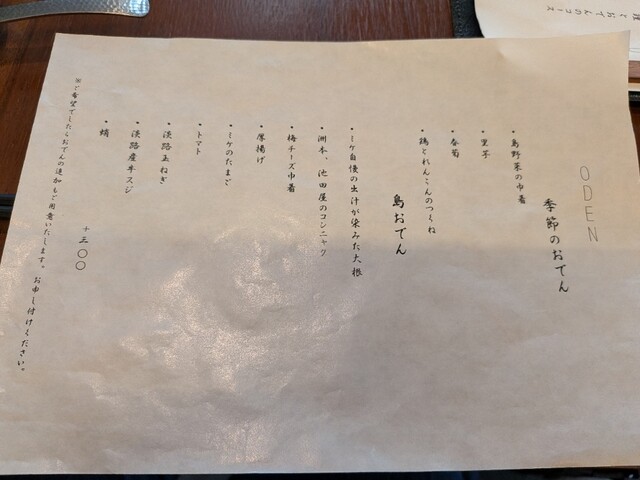 ODEN
季節のおでん
・島野菜の巾着
・里芋
・春菊
・鶏とれんこんのつくね
島おでん
・ミケ自慢の出汁が染みた大根
・洲本、池田屋のコンニャク
・梅チーズ巾着
・厚揚げ
・ミケのたまご
・トマト
・淡路玉ねぎ
・淡路産牛スジ
・蛸
+三〇〇
※ご希望でしたらおでんの追加もご用意いたします。お申し付けください。
おでんのコース